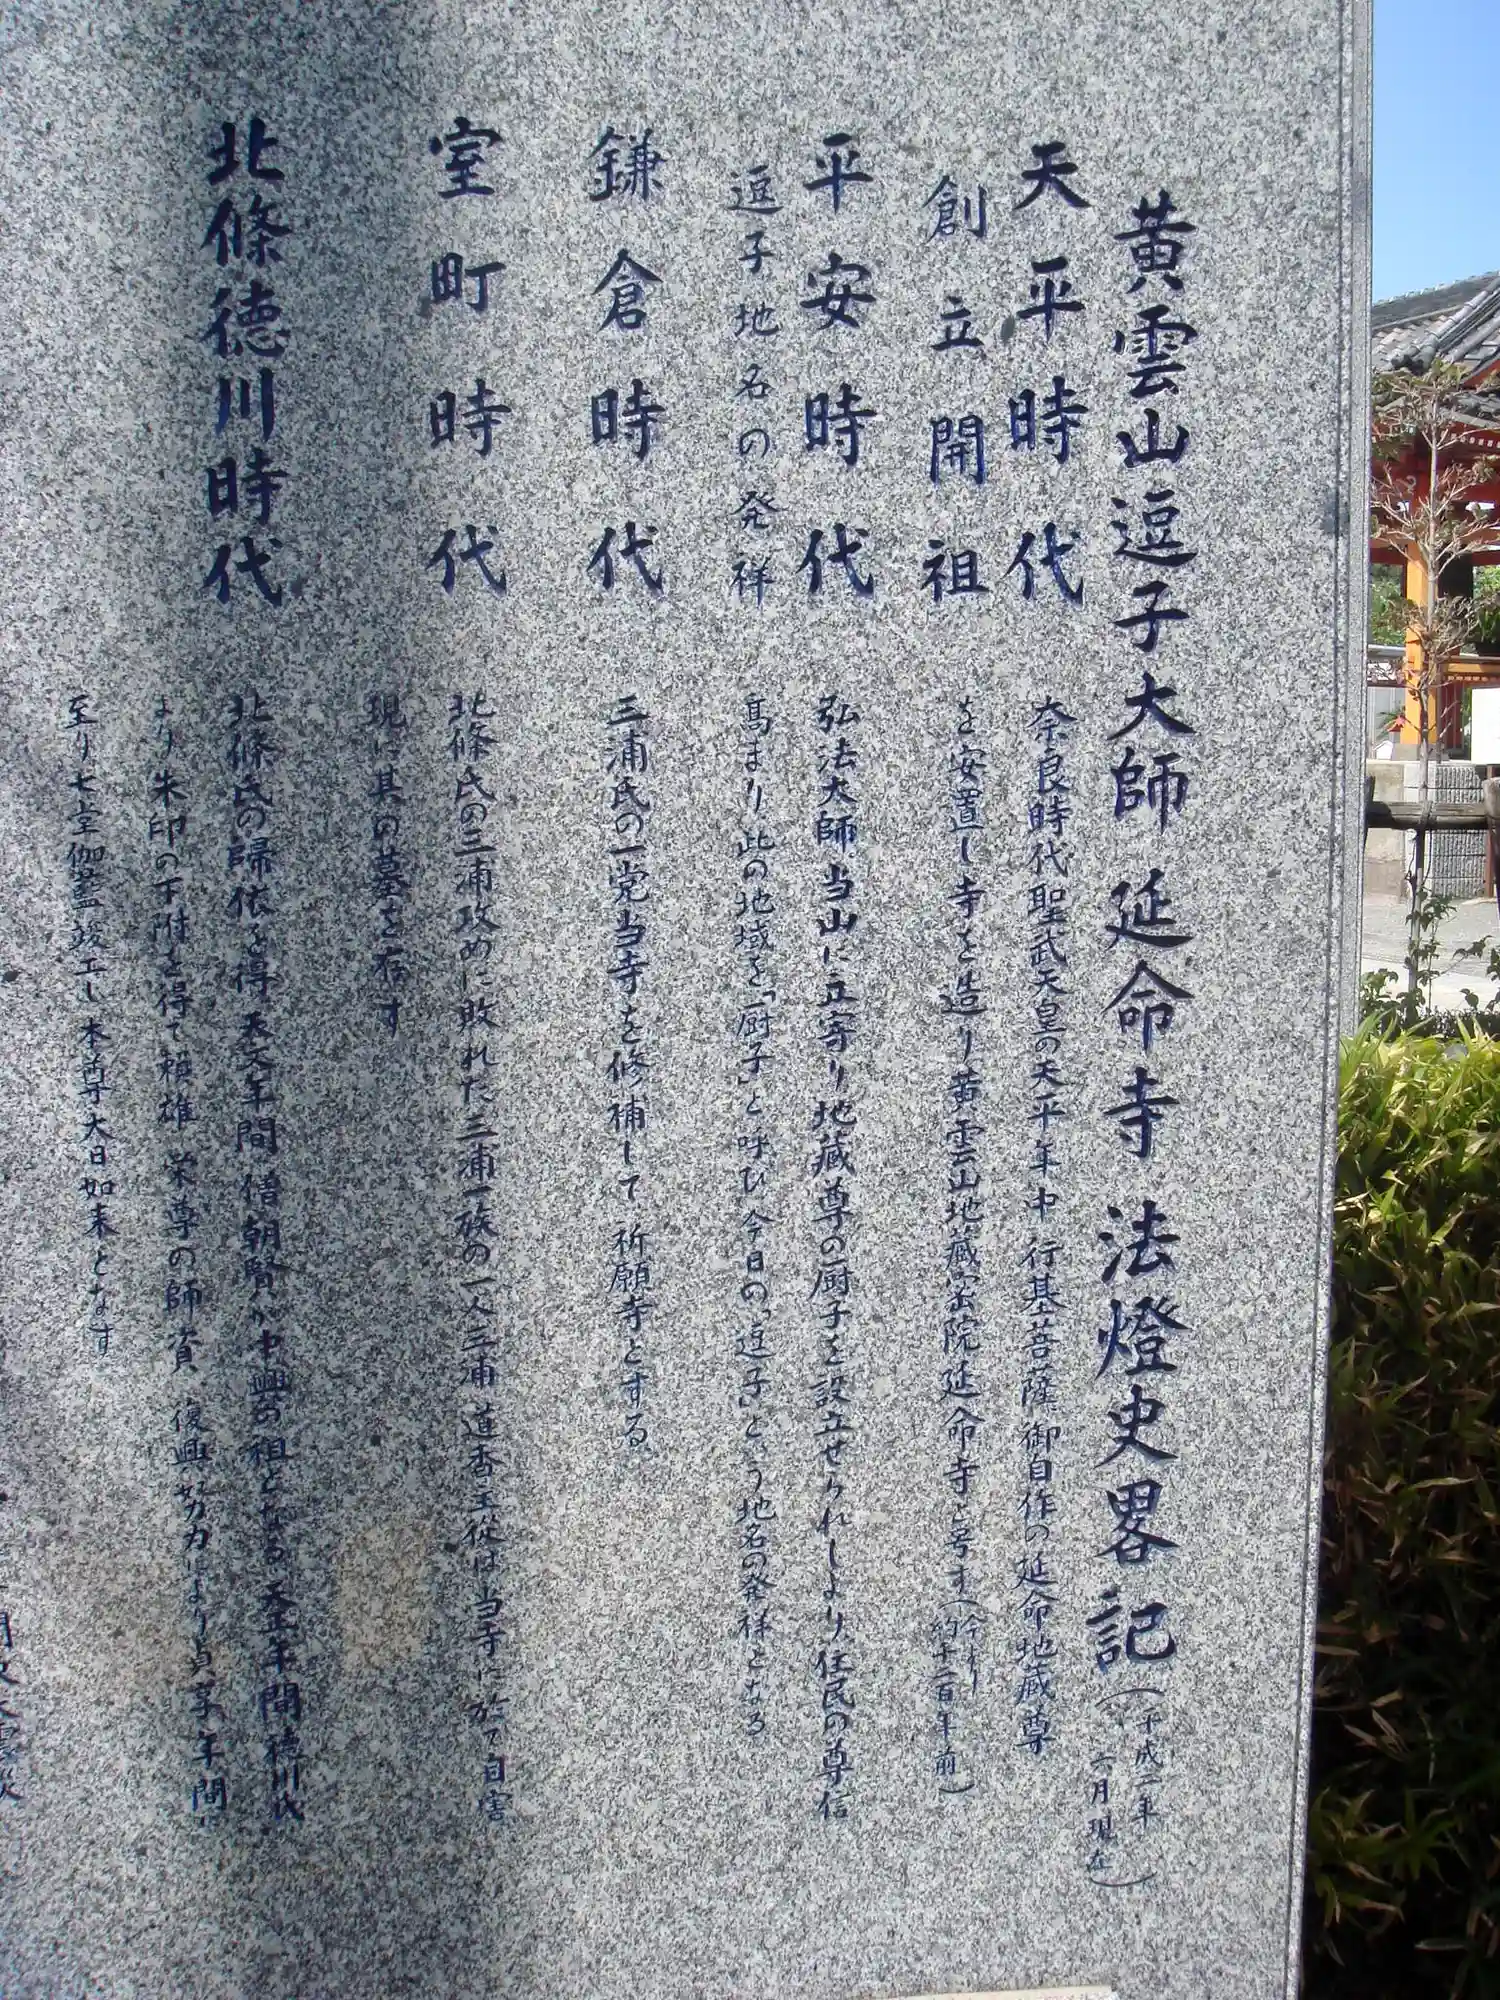 黄雲山逗子大師 延命寺 法燈史畧記(平成一年六月現在)
天平時代
創立開祖
奈良時代聖武天皇の天平年中 行基菩薩、御自作の延命地蔵尊
を安置し寺を造り黄雲山地蔵密院延命寺と号す(今より約千二百年前)
平安時代
逗子地名の発祥
弘法大師、当山に立寄り地蔵尊の厨子を設立せられしより、住民の尊信
高まり此の地域を「厨子」と呼び 今日の「逗子」という地名の発祥となる
鎌倉時代
三浦氏の一党当寺を修補して 祈願寺とする
室町時代
北條氏の三浦攻めに敗れた三浦一族の一人三浦 道香主従は当寺に於て自害
現に其の墓を存す
北條徳川時代
北條氏の帰依を得 天文年間 僧朝賢が中興の祖となる 天正年間徳川氏
より 朱印の下附を得て 頼雄 栄尊の師資 復興努力により 貞享年間に
至り 七堂伽藍竣工し本尊大日如来となす